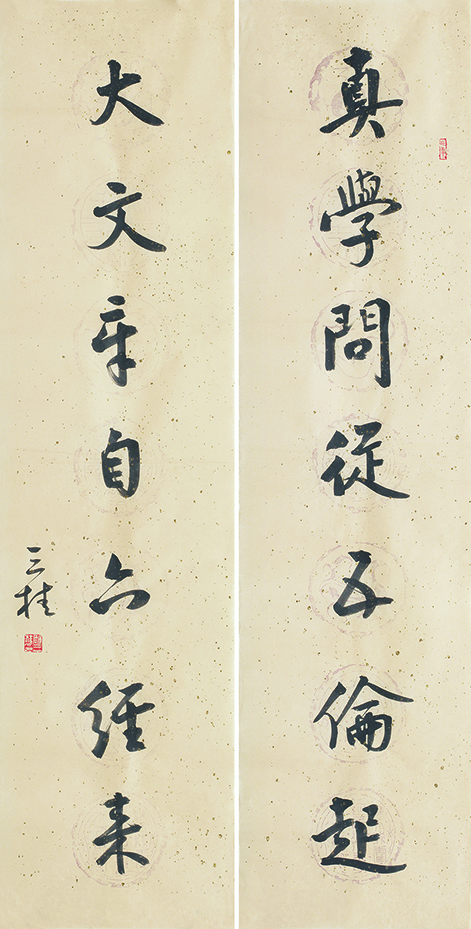 真學問從五倫起
大文章自六經来
三桂